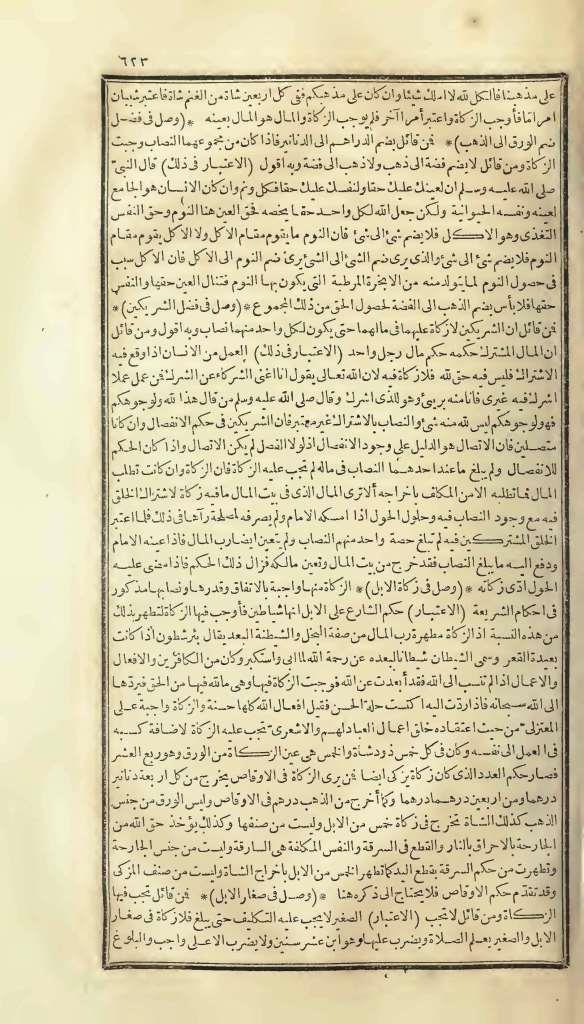 ٦٢٣
على مذهبنا فالكل لله لا أملك شيئا وان كان على مذهبكم ففى كل أربعين شاة من الغنم شاة فاعتبر شيبان
أمرا ما فأوجب الزكاة واعتبر أمرا آخر فلم يوجب الزكاة والمال هو المال بعينه * (وصل فى فضل
ضم الورق الى الذهب) * فمن قائل يضم الدراهم الى الدنانير فاذا كان من مجموعهما النصاب وجبت
الزكاة ومن قائل لا يضم فضة الى ذهب ولا ذهب الى فضة وبه أقول (الاعتبار فى ذلك) قال النبى
صلى الله عليه وسلم ان لعينك عليك حقا ولنفسك عليك حقا فكل ونم وان كان الانسان هو الجامع
لعينه ونفسه الحيوانية ولكن جعل الله لكل واحد حقا يخصه فحق العين هنا النوم وحق النفس
التغذى وهو الاكل فلا يضم شئ الى شئ فان النوم ما يقوم مقام الاكل ولا الاكل يقوم مقام
النوم فلا يضم شئ الى شئ والذى يرى ضم الشئ الى الشئ يرى ضم النوم الى الاكل فان الاكل سبب
فى حصول النوم لما يتولد منه من الابخرة المرطبة التى يكون بها النوم فتنال العين حقها والنفس
حقها فلا بأس بضم الذهب الى الفضة لحصول الحق من ذلك المجموع * (وصل فى فضل الشريكين) *
فمن قائل ان الشريكين لا زكاة عليهما فى مالهما حتى يكون لكل واحد منهما نصاب وبه أقول ومن قائل
ان المال المشترك حكمه حكم مال رجل واحد (الاعتبار فى ذلك) العمل من الانسان اذا وقع فيه
الاشتراك فليس فيه حق لله فلا زكاة فيه لان الله تعالى يقول انا أغنى الشركاء عن الشرك فمن عمل عملا
أشرك فيه غيرى فانا منه برىء وهو للذى أشرك وقال صلى الله عليه وسلم من قال هذا لله ولوجوهكم
فهو لوجوهكم ليس لله منه شئ والنصاب بالاشتراك غير معتبر فان الشريكين فى حكم الانفصال وان كانا
متصلين فان الاتصال هو الدليل على وجود الانفصال اذ لولا الفصل لم يكن الاتصال واذا كان الحكم
للانفصال ولم يبلغ ما عند أحدهما النصاب فى ماله لم تجب عليه الزكاة فان الزكاة وان كانت تطلب
المال فما تطلبه الا من المكلف باخراجه ألا ترى المال الذى فى بيت المال ما فيه زكاة لاشتراك الخلق
فيه مع وجود النصاب فيه وحلول الحول اذا أمسكه الامام ولم يصرفه لمصلحة رآها فى ذلك فلما اعتبر
الخلق المشتركين فيه لم تبلغ حصة واحد منهم النصاب ولم يتعين أيضا رب المال فاذا عينه الامام
ودفع اليه ما يبلغ النصاب فقد خرج من بيت المال وتعين مالكه فزال ذلك الحكم فاذا مضى عليه
الحول أدى زكاته * (وصل فى زكاة الابل) * الزكاة منها واجبة بالاتفاق وقدرها ونصابها مذكور
فى أحكام الشريعة (الاعتبار) حكم الشارع على الابل انها شياطين فأوجب فيها الزكاة لتطهر بذلك
من هذه النسبة اذ الزكاة مطهرة رب المال من صفة البخل والشيطنة البعد يقال بئر شطون اذا كانت
بعيدة القعر وسمى الشيطان شيطانا لبعده عن رحمة الله لما أبى واستكبر وكان من الكافرين والافعال
والاعمال اذا لم تنسب الى الله فقد أبعدت عن الله فوجبت الزكاة فيها وهى ما لله فيها من الحق فبردها
الى الله سبحانه فاذا ردت اليه اكتست حلة الحسن فقيل أفعال الله كلها حسنة والزكاة واجبة على
المعتزلى من حيث اعتقاده خلق أعمال العباد لهم والاشعرى تجب عليه الزكاة لاضافة كسبه
فى العمل الى نفسه وكان فى كل خمس ذود شاة والخمس هى عين الزكاة من الورق وهو ربع العشر
فصار حكم العدد الذى كان زكاة يزكى أيضا فمن يرى الزكاة فى الاوقاص يخرج من كل أربعة دنانير
درهما ومن أربعين درهما درهما وكما أخرج من الذهب درهم فى الاوقاص وليس الورق من جنس
الذهب كذلك الشاة تخرج فى زكاة خمس من الابل وليست من صنفها وكذلك يؤخذ حق الله من
الجارحة بالاحراق بالنار والقطع فى السرقة والنفس المكلفة هى السارقة وليست من جنس الجارحة
وتطهرت من حكم السرقة بقطع اليد كما تطهر الخمس من الابل باخراج الشاة وليست من صنف المزكى
وقد تقدم حكم الاوقاص فلا يحتاج الى ذكره هنا * (وصل فى صغار الابل) * فمن قائل تجب فيها
الزكاة ومن قائل لا تجب (الاعتبار) الصغير لا يجب عليه التكليف حتى يبلغ فلا زكاة فى صغار
الابل والصغير يعلم الصلاة ويضرب عليها وهو ابن عشر سنين ولا يضرب الا على واجب والبلوغ